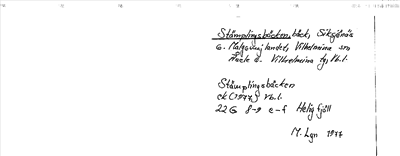 Stämplingsbäcken, bäck, Siksjönäs
G. Malgomajlandet, Vilhelmina sn
Åsele d. Vilhelmina tg, Vb.l.
Stämplingsbäcken
ek (1977) Vb.l.
22G 8-9 e-f Helig fjäll
M. Lgn 1977